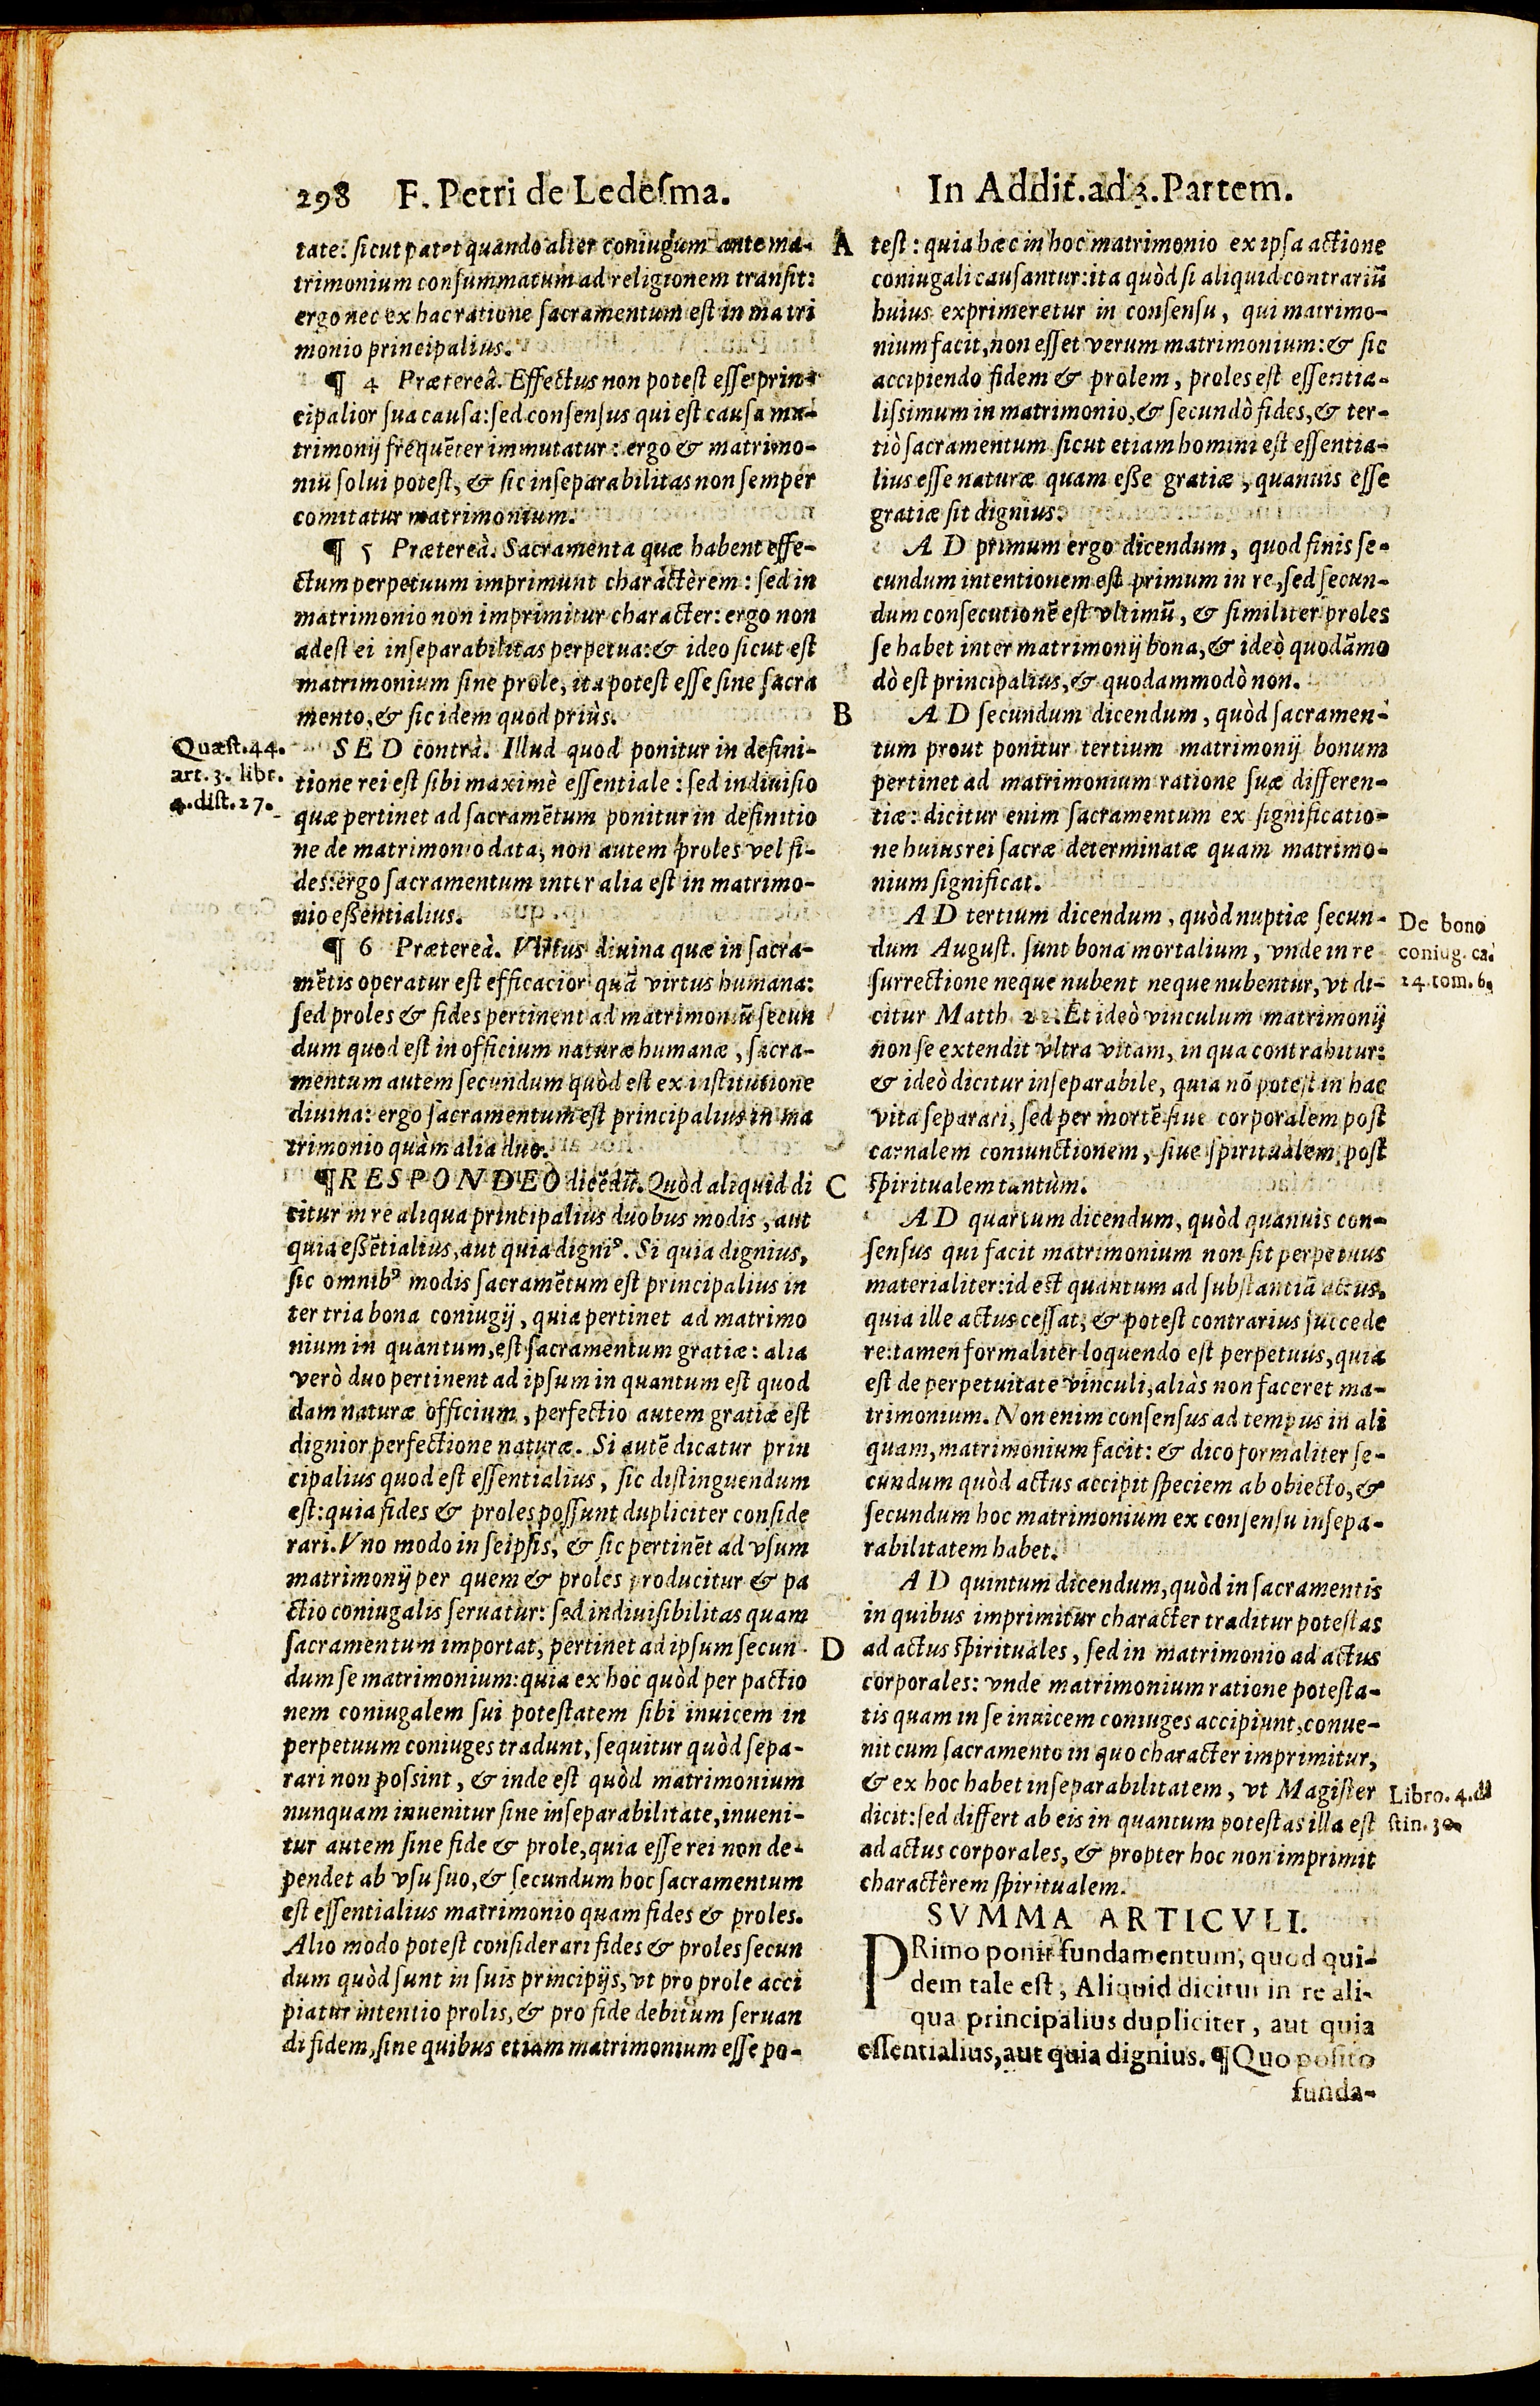 298 F. Petri de Ledeſma.
tate: ſicut patet quando alter coniugum ante ma-
trimonium conſummatum ad religionem tranſit:
ergo nec ex hac ratione ſacramentum eſt in matri
monio principalius.
¶ 4 Prætereà. Effectus non poteſt eſſe prin-
cipalior ſua cauſa: ſed conſenſus qui eſt cauſa ma-
trimonij frequẽter immutatur: ergo & matrimo-
niũ ſolui poteſt, & ſic inſeparabilitas non ſemper
comitatur matrimonium.
¶ 5 Prætereà. Sacramenta quæ habent effe-
ctum perpetuum imprimunt charàctèrem: ſed in
matrimonio non imprimitur character: ergo non
adeſt ei inſeparabilitas perpetua: & ideo ſicut eſt
matrimonium ſine prole, ita poteſt eſſe ſine ſacra
mento, & ſic idem quod priùs.
Quæſt. 44.
art. 3. libr.
4. diſt. 27.
SED contrà. Illud quod ponitur in defini-
tione rei eſt ſibi maximè eſſentiale: ſed indiuiſio
quæ pertinet ad ſacramẽtum ponitur in definitio
ne de matrimonio data, non autem proles vel fi-
des: ergo ſacramentum inter alia eſt in matrimo-
nio eßentialius.
¶ 6 Prætereà. Virtus diuina quæ in ſacra-
mẽtis operatur eſt efficacior quã virtus humana:
ſed proles & fides pertinent ad matrimoniũ ſecun
dum quod eſt in officium naturæ humanæ, ſacra-
mentum autem ſecundum quòd eſt ex inſtitutione
diuina: ergo ſacramentum eſt principalius in ma
trimonio quàm alia duo.
¶ RESPONDEO dicẽdũ. Quòd aliquid di
citur in re aliqua principalius duobus modis, aut
quia eßẽtialius, aut quia digniꝰ. Si quia dignius,
ſic omnibꝰ modis ſacramẽtum eſt principalius in
ter tria bona coniugij, quia pertinet ad matrimo
nium in quantum, eſt ſacramentum gratiæ: alia
verò duo pertinent ad ipſum in quantum eſt quod
dam naturæ officium, perfectio autem gratiæ eſt
dignior perfectione naturæ. Si autẽ dicatur prin
cipalius quod eſt eſſentialius, ſic diſtinguendum
eſt: quia fides & proles poſſunt dupliciter conſide
rari. Vno modo in ſeipſis, & ſic pertinẽt ad vſum
matrimonij per quem & proles producitur & pa
ctio coniugalis ſeruatur: ſed indiuiſibilitas quam
ſacramentum importat, pertinet ad ipſum ſecun-
dum ſe matrimonium: quia ex hoc quòd per pactio
nem coniugalem ſui poteſtatem ſibi inuicem in
perpetuum coniuges tradunt, ſequitur quòd ſepa-
rari non poſsint, & inde eſt quòd matrimonium
nunquam inuenitur ſine inſeparabilitate, inueni-
tur autem ſine fide & prole, quia eſſe rei non de-
pendet ab vſu ſuo, & ſecundum hoc ſacramentum
eſt eſſentialius matrimonio quam fides & proles.
Alio modo poteſt conſiderari fides & proles ſecun
dum quòd ſunt in ſuis principijs, vt pro prole acci
piatur intentio prolis, & pro fide debitum ſeruan
di fidem, ſine quibus etiam matrimonium eſſe po-
A
B
C
D
In Addit. ad 3. Partem.
teſt: quia hæc in hoc matrimonio ex ipſa actione
coniugali cauſantur: ita quòd ſi aliquid contrariũ
huius exprimeretur in conſenſu, qui matrimo-
nium facit, non eſſet verum matrimonium: & ſic
accipiendo fidem & prolem, proles eſt eſſentia-
liſsimum in matrimonio, & ſecundò fides, & ter-
tiò ſacramentum ſicut etiam homini eſt eſſentia-
lius eſſe naturæ quam eße gratiæ, quanuis eſſe
gratiæ ſit dignius.
AD primum ergo dicendum, quod finis ſe-
cundum intentionem eſt primum in re, ſed ſecun-
dum conſecutionẽ eſt vltimũ, & ſimiliter proles
ſe habet inter matrimonij bona, & ideò quodãmo
dò eſt principalius, & quodammodò non.
AD ſecundum dicendum, quòd ſacramen-
tum prout ponitur tertium matrimonij bonum
pertinet ad matrimonium ratione ſuæ differen-
tiæ: dicitur enim ſacramentum ex ſignificatio-
ne huius rei ſacræ determinatæ quam matrimo-
nium ſignificat.
AD tertium dicendum, quòd nuptiæ ſecun-
dum Auguſt. ſunt bona mortalium, vnde in re
ſurrectione neque nubent neque nubentur, vt di-
citur Matth. 22. Et ideò vinculum matrimonij
non ſe extendit vltra vitam, in qua contrahitur:
& ideò dicitur inſeparabile, quia nõ poteſt in hac
vita ſeparari, ſed per mortẽ ſiue corporalem poſt
carnalem coniunctionem, ſiue ſpiritualem, poſt
ſpiritualem tantùm.
De bono
coniug. ca.
14. tom. 6.
AD quartum dicendum, quòd quanuis con-
ſenſus qui facit matrimonium non ſit perpetuus
materialiter: id eſt quantum ad ſubſtantiã actus,
quia ille actus ceſſat, & poteſt contrarius ſuccede
re: tamen formaliter loquendo eſt perpetuus, quia
eſt de perpetuitate vinculi, aliàs non faceret ma-
trimonium. Non enim conſenſus ad tempus in ali
quam, matrimonium facit: & dico formaliter ſe-
cundum quòd actus accipit ſpeciem ab obiecto, &
ſecundum hoc matrimonium ex conſenſu inſepa-
rabilitatem habet.
AD quintum dicendum, quòd in ſacramentis
in quibus imprimitur character traditur poteſtas
ad actus ſpirituales, ſed in matrimonio ad actus
corporales: vnde matrimonium ratione poteſta-
tis quam in ſe inuicem coniuges accipiunt, conue-
nit cum ſacramento in quo character imprimitur,
& ex hoc habet inſeparabilitatem, vt Magiſter
dicit: ſed differt ab eis in quantum poteſtas illa eſt
ad actus corporales, & propter hoc non imprimit
charactêrem ſpiritualem.
Libro. 4. di
ſtin. 30.
SVMMA ARTICVLI.
PRimo ponit fundamentum, quod qui-
dem tale eſt, Aliquid dicitur in re ali-
qua principalius dupliciter, aut quia
eſſentialius, aut quia dignius. ¶ Quo poſito
funda-